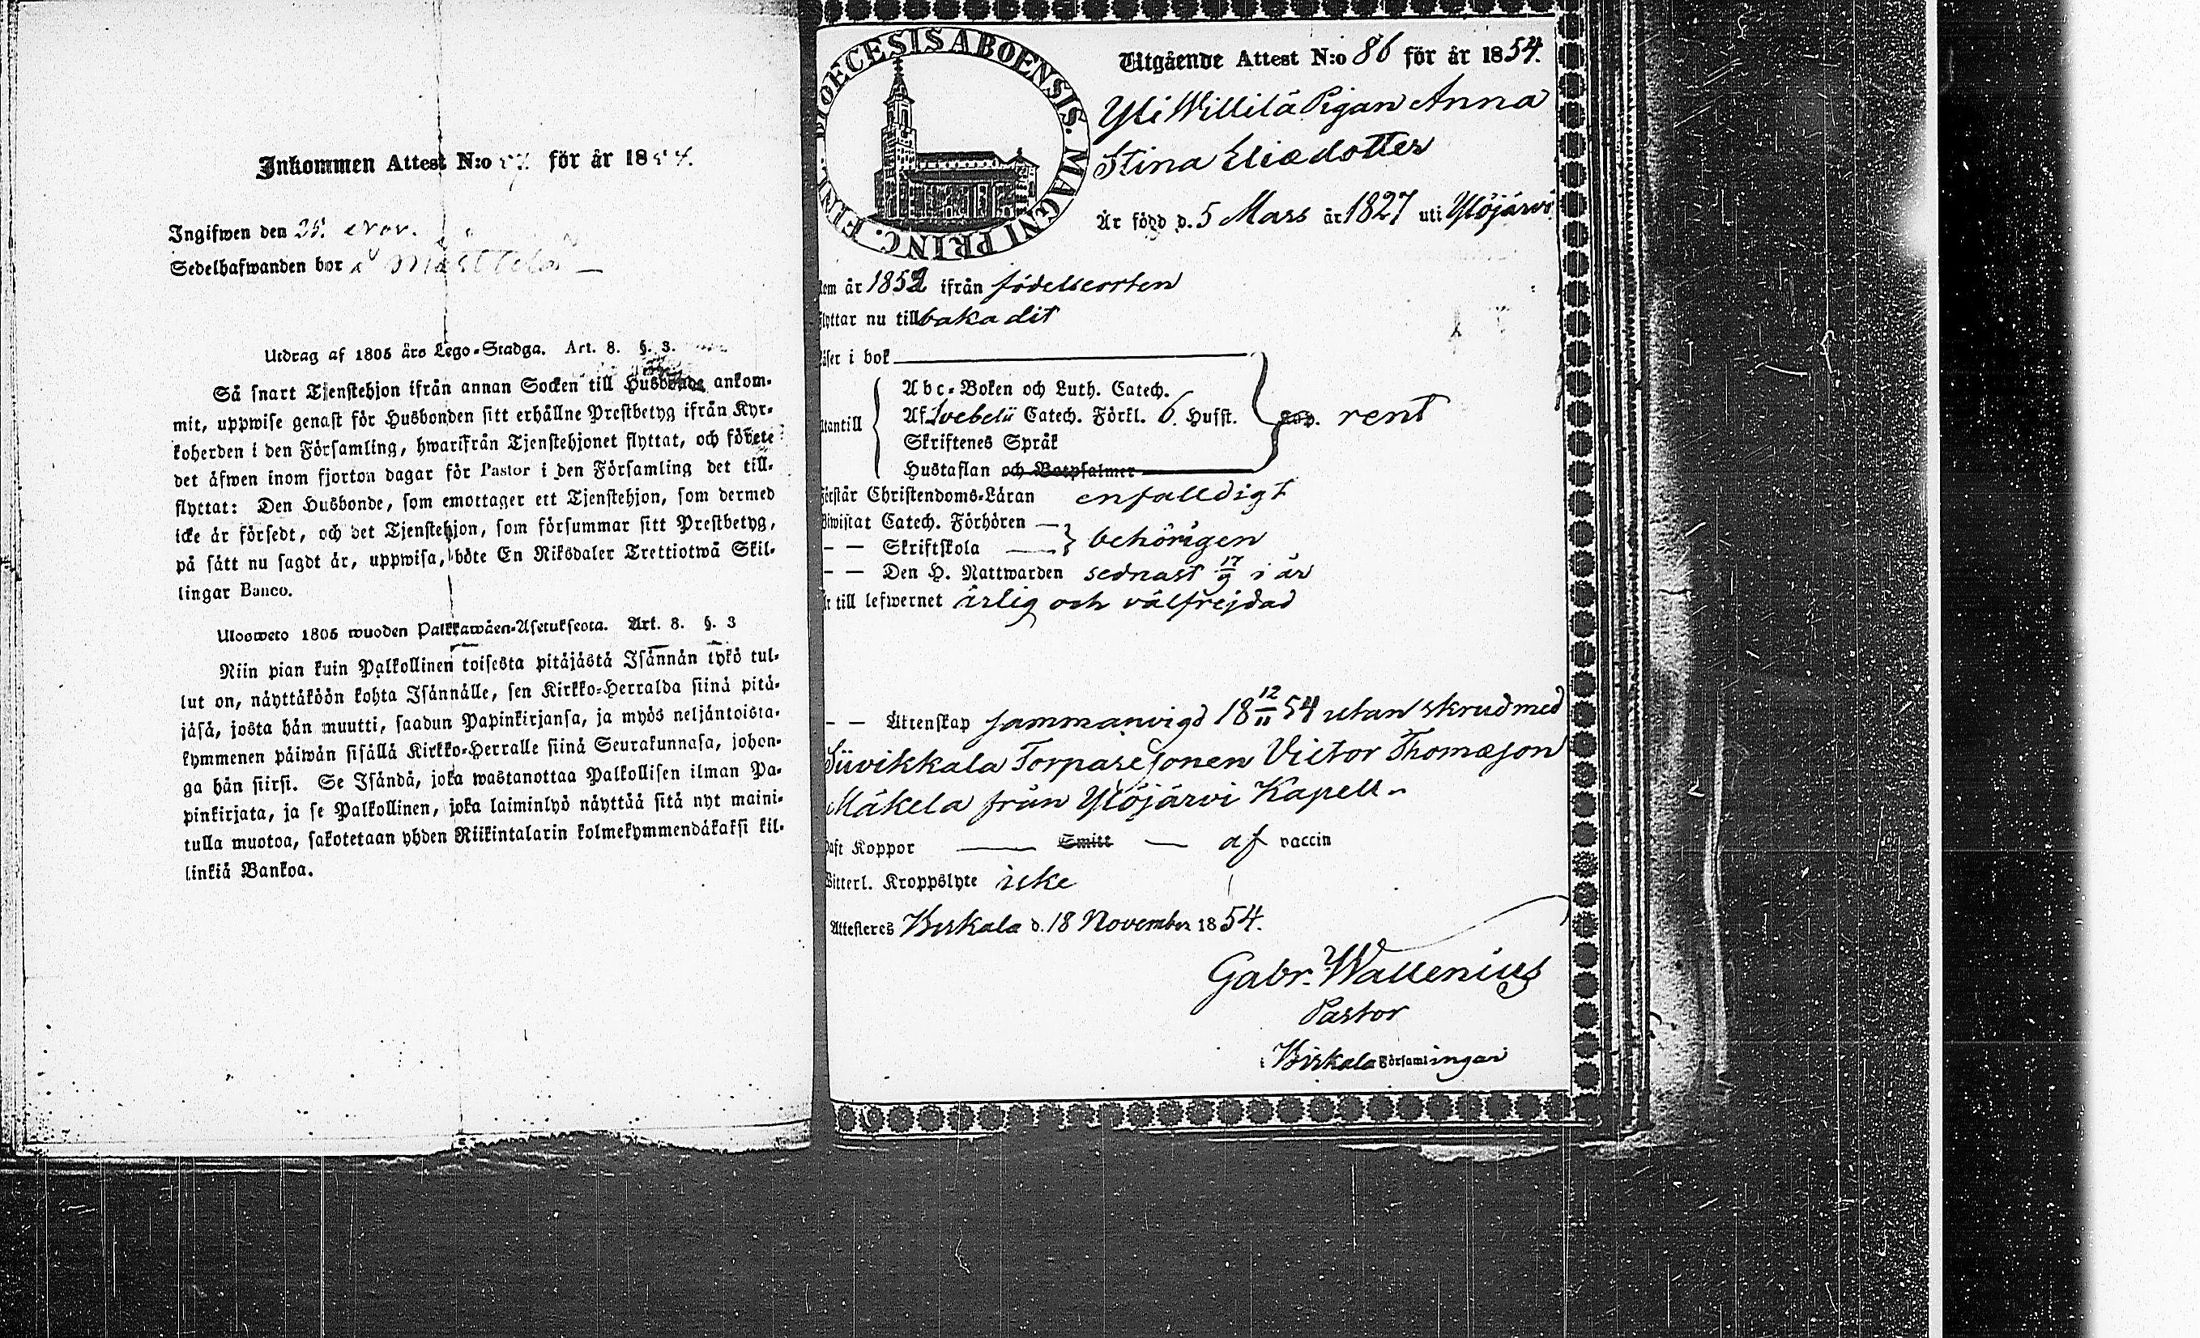 Inkommen Attest N:o för år 1854.
Ingifwen den 25. Nov.
Sedelhafwanden bor i
Utdrag af 1805 års Lego-Stadga. Art. 8. §. 3.
Så snart Tjenstehjon ifrån annan Socken till Husbonde ankom-
mit, uppwise genast för Husbonden sitt erhållne Prestbetyg ifrån Kyr-
koherden i den Församling, hwarifrån Tjenstehjonet flyttat, och förete
det äfwen inom fjorton dagar för Pastor i den Församling det till-
flyttat: Den Husbonde, som emottager ett Tjenstehjon, som dermed
icke är försedt, och det Tjenstehjon, som försummar sitt Prestbetyg,
på sätt nu sagdt är, uppwisa, böte En Riksdaler Trettiotwå Skil-
lingar Banco.
Ulosweto 1805 wuoden Palkkawäen-Asetuksesta. Art. 8. §. 3
Niin pian kuin Palkollinen toisesta pitäjästä Isännän tykö tul-
lut on, näyttäköön kohta Isännälle, sen Kirkko-Herralda siinä pitä-
jäsä, josta hän muutti, saadun Papinkirjansa, ja myös neljäntoista-
kymmenen päiwän sisällä Kirkko-Herralle siinä Seurakunnasa, johon-
ga hän siirsi. Se Isändä, joka wastanottaa Palkollisen ilman Pa-
pinkirjata, ja se Palkollinen, joka laiminlyö näyttää sitä nyt maini-
tulla muotoa, sakotetaan yhden Riikintalarin kolmekymmendäkaksi kil-
linkiä Bankoa.
DIOECESIS ABOENSIS. MAGNI PRINC. FINL.
Utgående Attest N:o 86 för år 1854.
Yli Willilä Pigan Anna
Stina Eliædotter
Är född d. 5 Mars år 1827 uti Ylöjärvi
kom år 1852 ifrån födelseorten
flyttar nu tillbaka dit
Läser i bok
Abc-Boken och Luth. Catech.
Af Svebelii Catech. Förkl. 6. Hufst. rent
Utantill
Skriftenes Språk
Hustaflan och Botpsalmer
Förstår Christendoms-Läran enfalldigt
Biwistat Catech. Förhören
behörigen
— — Skriftskola
— — Den H. Nattwarden sednast 17/9 i år
Är till lefwernet ärlig och välfrejdad
— — Äktenskap sammanvigd 18 12/11 54 utan skrud med
Siivikkala Torparesonen Victor Thomæson
Mäkela från Ylöjärvi Kapell
Haft Koppor — Smitt — af vaccin
Witterl. Kroppslyte icke
Attesteres Birkala d. 18 November 1854.
Gabr. Wallenius
Pastor
i Birkala Församlingar